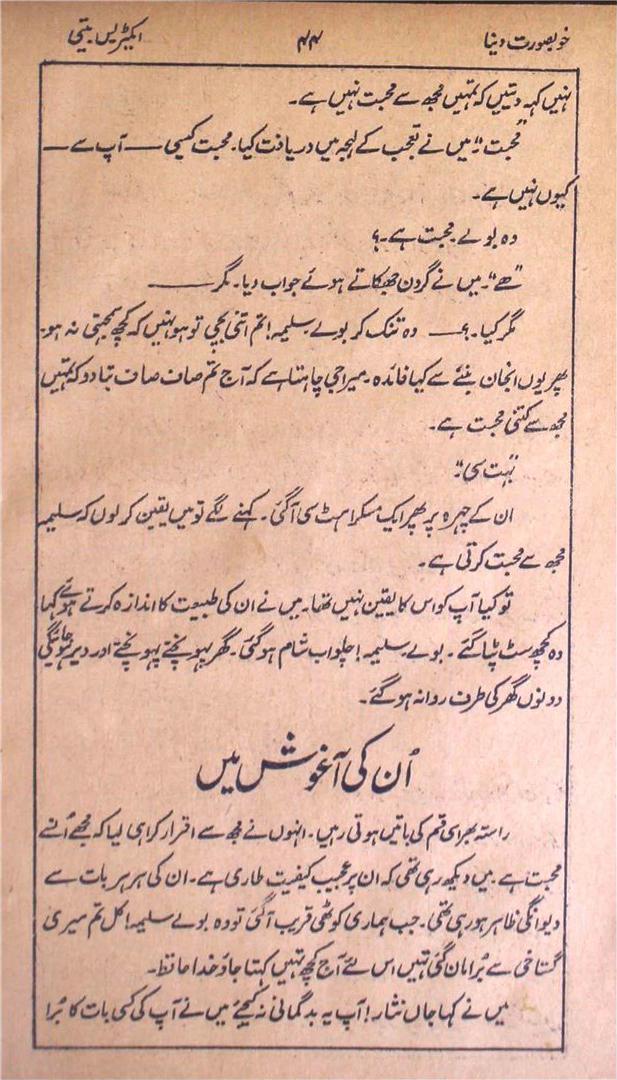 خوبصورت دنیا ۴۴ ایکٹریس بیتی
نہیں کہہ دیتیں کہ تمہیں مجھ سے محبت نہیں ہے۔
"محبت"۔ میں نے تعجب کے لہجہ میں دریافت کیا۔ محبت کیسی —— آپ سے ——
کیوں نہیں ہے۔
وہ بولے۔ محبت ہے۔؟
"ہے"۔ میں نے گردن جھکاتے ہوئے جواب دیا۔ مگر ——
مگر کیا۔؟ — وہ تنک کر بولے سلیمہ! تم اتنی بچی تو ہو نہیں کہ کچھ سمجھتی نہ ہو۔
پھر یوں انجان بننے سے کیا فائدہ۔ میرا جی چاہتا ہے کہ آج تم صاف صاف بتا دو کہ تمہیں
مجھ سے کتنی محبت ہے۔
"بہت سی"۔
ان کے چہرہ پر پھر ایک مسکراہٹ سی آگئی۔ کہنے لگے تو میں یقین کر لوں کہ سلیمہ
مجھ سے محبت کرتی ہے۔
تو کیا آپ کو اس کا یقین نہیں تھا۔ میں نے ان کی طبیعت کا اندازہ کرتے ہوئے کہا
وہ کچھ سٹ پٹا گئے۔ بولے سلیمہ! چلو اب شام ہوگئی۔ گھر پہونچتے پہونچتے اور دیر ہو جائیگی
دونوں گھر کی طرف روانہ ہوگئے۔
اُن کی آغوش میں
راستہ بھر اسی قسم کی باتیں ہوتی رہیں۔ انہوں نے مجھ سے اقرار کرا ہی لیا کہ مجھے اُنسے
محبت ہے۔ میں دیکھ رہی تھی کہ ان پر عجیب کیفیت طاری ہے۔ ان کی ہر ہر بات سے
دیوانگی ظاہر ہو رہی تھی۔ جب ہماری کوٹھی قریب آگئی تو وہ بولے سلیمہ! کل تم میری
گستاخی سے بُرا مان گئی تہیں اس لئے آج کچھ نہیں کہتا جاؤ خدا حافظ۔
میں نے کہا جاں نثار! آپ یہ بدگمانی نہ کیجئے میں نے آپ کی کسی بات کا بُرا